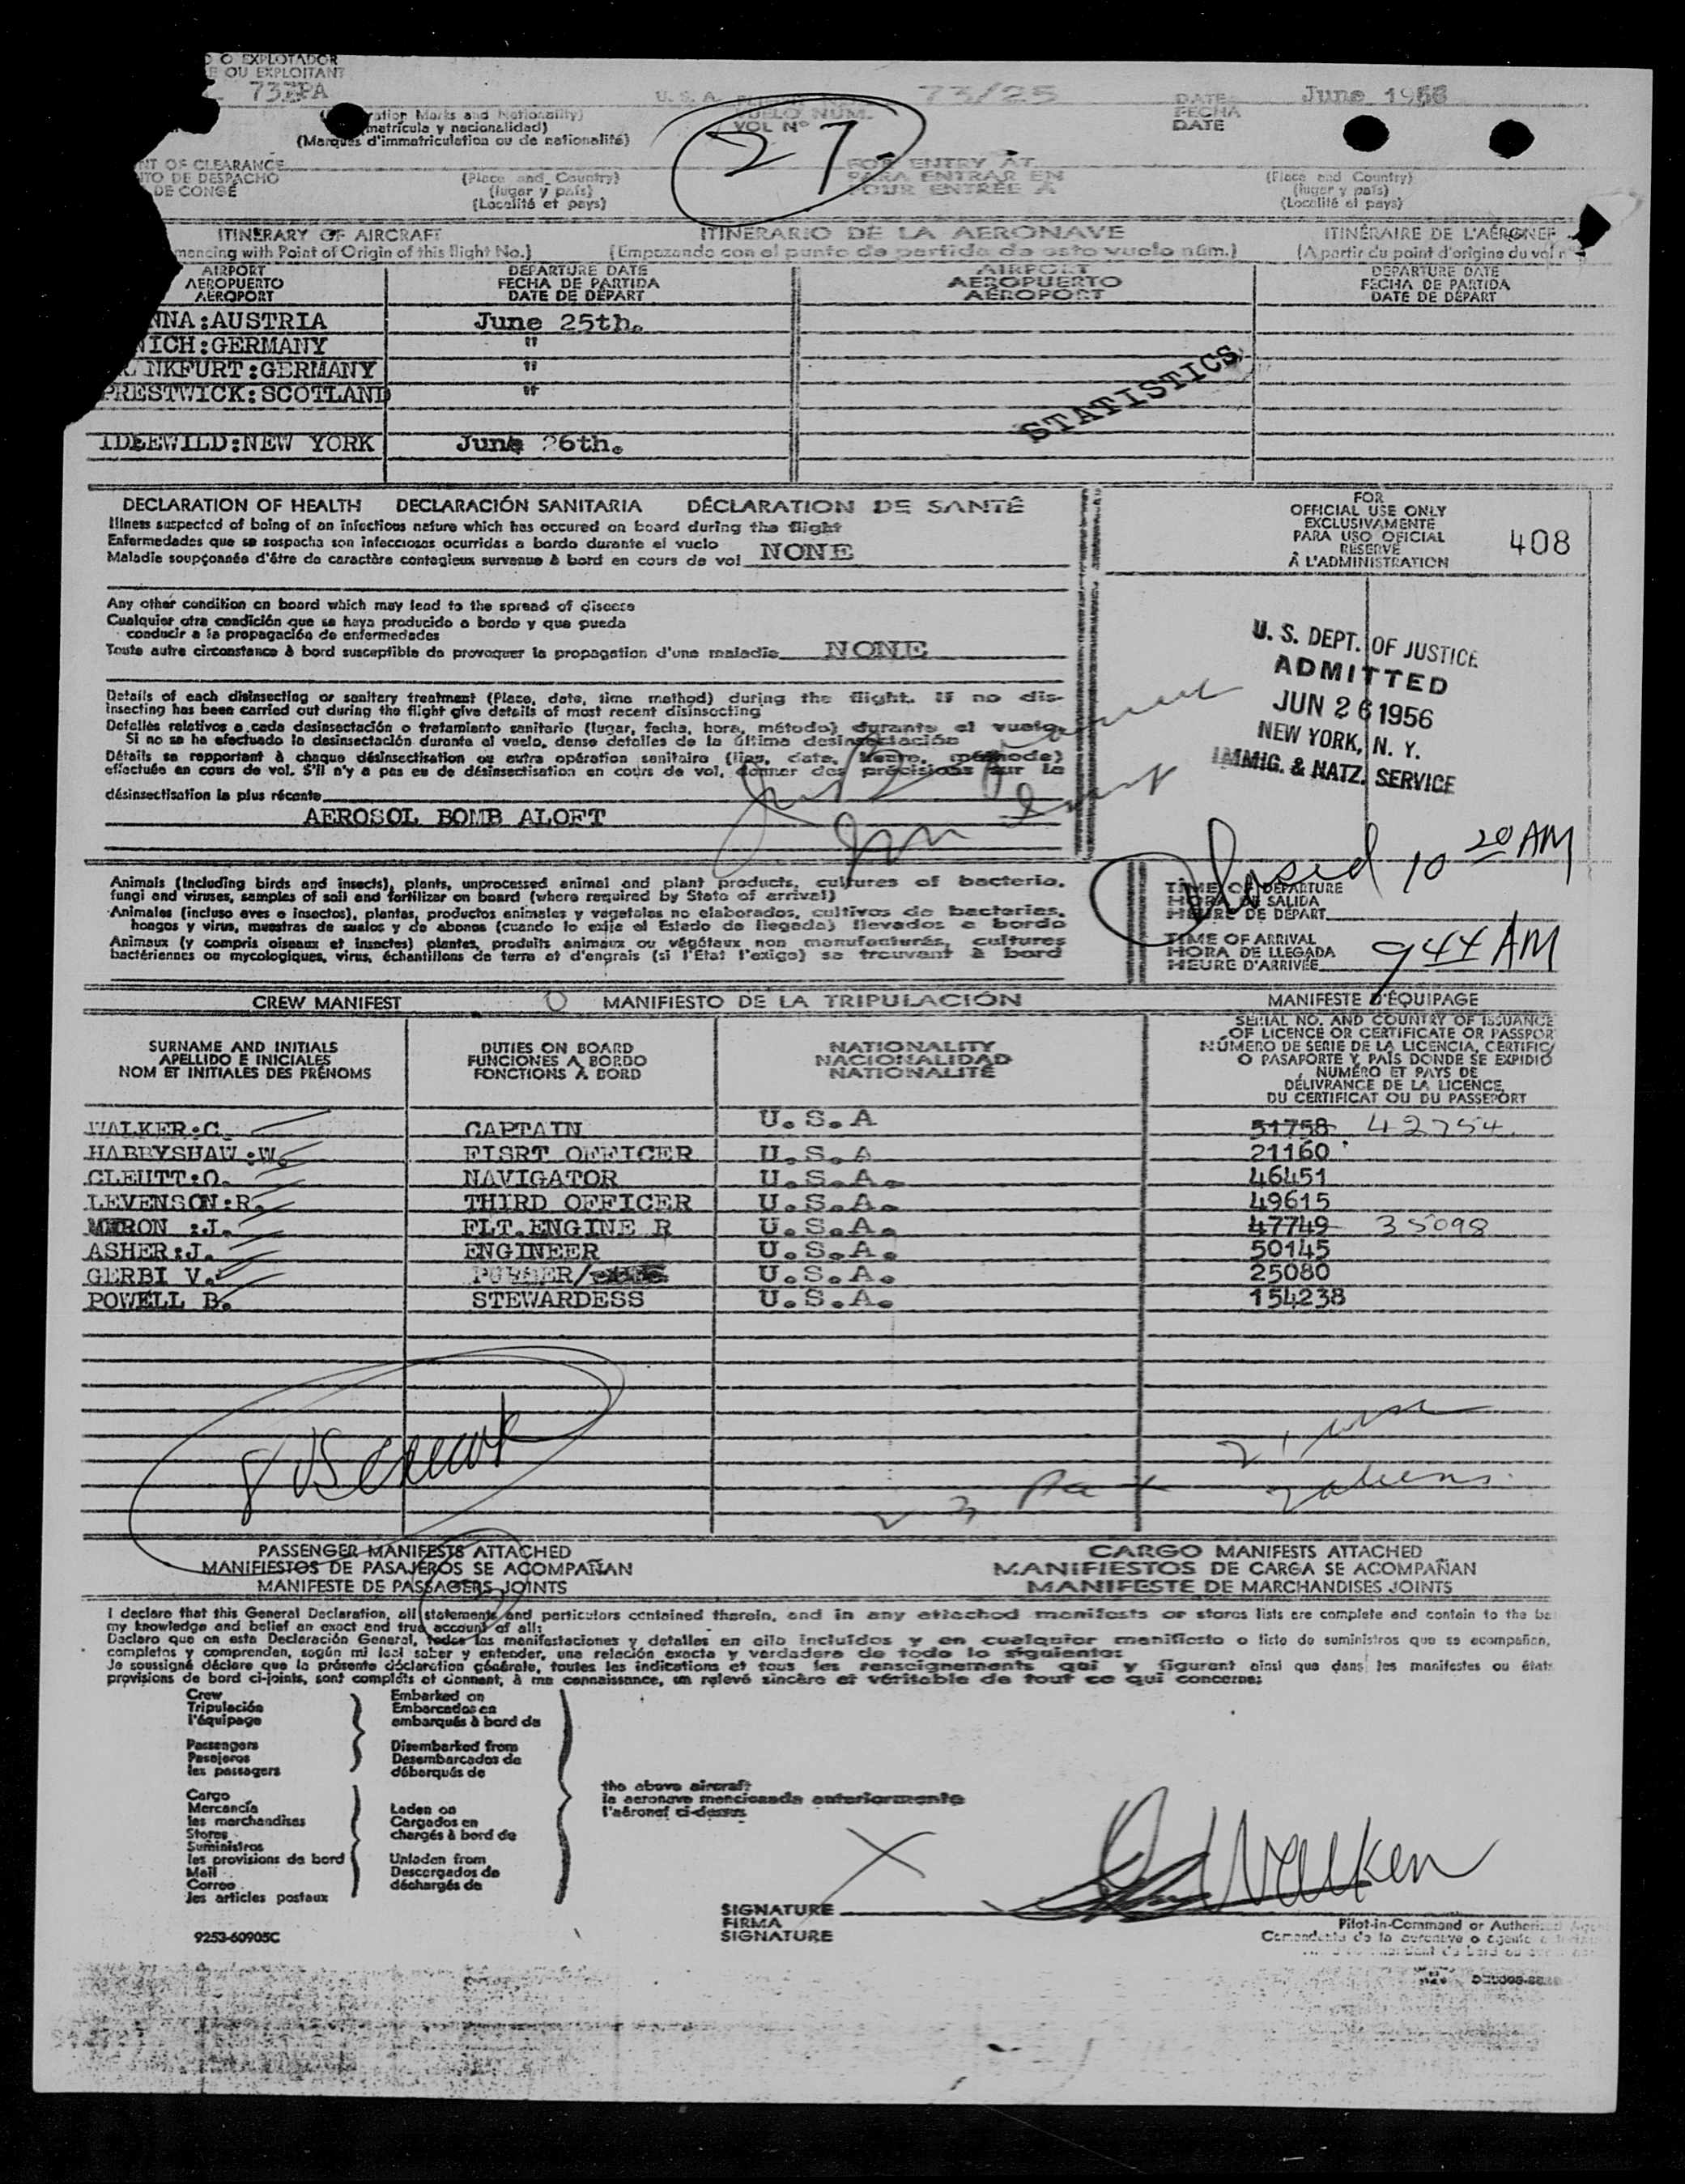 O EXPLOTADOR
E OU EXPLOITANT
U. S. A.
73/25
DATE
FECHA
DATE
June 1956
ation Marks and Nationality)
matrícula y nacionalidad)
(Marques d'immatriculation ou de nationalité)
VUELO NÚM.
VOL Nº
27
NT OF CLEARANCE
NTO DE DESPACHO
DE CONGÉ
(Place and Country)
(lugar y país)
(Localité et pays)
FOR ENTRY AT
PARA ENTRAR EN
POUR ENTRÉE À
(Place and Country)
(lugar y país)
(Localité et pays)
ITINERARY OF AIRCRAFT
ITINERARIO DE LA AERONAVE
ITINÉRAIRE DE L'AÉRONEF
mencing with Point of Origin of this flight No.)
(Empezando con el punto de partida de este vuelo núm.)
(A partir du point d'origine du vol n
AIRPORT
AEROPUERTO
AÉROPORT
DEPARTURE DATE
FECHA DE PARTIDA
DATE DE DÉPART
AIRPORT
AEROPUERTO
AÉROPORT
DEPARTURE DATE
FECHA DE PARTIDA
DATE DE DÉPART
NNA:AUSTRIA June 25th.
NICH:GERMANY "
NKFURT:GERMANY "
PRESTWICK:SCOTLAND "
STATISTICS
IDLEWILD:NEW YORK June 26th.
DECLARATION OF HEALTH DECLARACIÓN SANITARIA DÉCLARATION DE SANTÉ
Illness suspected of being of an infectious nature which has occured on board during the flight
Enfermedades que se sospecha son infecciosas ocurridas a bordo durante el vuelo
Maladie soupçonnée d'être de caractère contagieux survenue à bord en cours de vol NONE
FOR
OFFICIAL USE ONLY
EXCLUSIVAMENTE
PARA USO OFICIAL
RÉSERVÉ
À L'ADMINISTRATION
408
Any other condition on board which may lead to the spread of disease
Cualquier otra condición que se haya producido a bordo y que pueda
conducir a la propagación de enfermedades
Toute autre circonstance à bord susceptible de provoquer la propagation d'une maladie NONE
U. S. DEPT. OF JUSTICE
ADMITTED
JUN 26 1956
NEW YORK, N. Y.
IMMIG. & NATZ. SERVICE
Details of each disinsecting or sanitary treatment (Place, date, time method) during the flight. If no dis-
insecting has been carried out during the flight give details of most recent disinsecting
Detalles relativos a cada desinsectación o tratamiento sanitario (lugar, fecha, hora, método) durante el vuelo.
Si no se ha efectuado la desinsectación durante el vuelo, dense detalles de la última desinsectación
Détails se rapportant à chaque désinsectisation ou autre opération sanitaire (lieu, date, heure, méthode)
effectuée en cours de vol. S'il n'y a pas eu de désinsectisation en cours de vol, donner des précisions sur la
désinsectisation la plus récente
AEROSOL BOMB ALOFT
Closed 10 20 AM
Animals (Including birds and insects), plants, unprocessed animal and plant products, cultures of bacteria,
fungi and viruses, samples of soil and fertilizer on board (where required by State of arrival)
Animales (incluso aves e insectos), plantas, productos animales y vegetales no elaborados, cultivos de bacterias,
hongos y virus, muestras de suelos y de abonos (cuando lo exija el Estado de llegada) llevados a bordo
Animaux (y compris oiseaux et insectes) plantes, produits animaux ou végétaux non manufacturés, cultures
bactériennes ou mycologiques, virus, échantillons de terre et d'engrais (si l'État l'exige) se trouvant à bord
TIME OF DEPARTURE
HORA DE SALIDA
HEURE DE DÉPART
TIME OF ARRIVAL
HORA DE LLEGADA
HEURE D'ARRIVÉE
9 44 AM
CREW MANIFEST
MANIFIESTO DE LA TRIPULACIÓN
MANIFESTE D'ÉQUIPAGE
SURNAME AND INITIALS
APELLIDO E INICIALES
NOM ET INITIALES DES PRÉNOMS
DUTIES ON BOARD
FUNCIONES A BORDO
FONCTIONS À BORD
NATIONALITY
NACIONALIDAD
NATIONALITÉ
SERIAL NO. AND COUNTRY OF ISSUANCE
OF LICENCE OR CERTIFICATE OR PASSPOR
NÚMERO DE SERIE DE LA LICENCIA, CERTIFIC
O PASAPORTE Y PAÍS DONDE SE EXPIDIÓ
NUMÉRO ET PAYS DE
DÉLIVRANCE DE LA LICENCE,
DU CERTIFICAT OU DU PASSEPORT
WALKER:C. CAPTAIN U.S.A 51758 42754
HABBYSHAW:W. FISRT OFFICER U.S.A 21160
CLEUTT:O. NAVIGATOR U.S.A. 46451
LEVENSON:R. THIRD OFFICER U.S.A. 49615
MYRON :J. FLT.ENGINE R U.S.A. 47749 35098
ASHER:J. ENGINEER U.S.A. 50145
GERBI V. PURSER/ U.S.A. 25080
POWELL B. STEWARDESS U.S.A. 154238
8 US crew
21 usa
23 Pax
2 aliens
PASSENGER MANIFESTS ATTACHED
MANIFIESTOS DE PASAJEROS SE ACOMPAÑAN
MANIFESTE DE PASSAGERS JOINTS
CARGO MANIFESTS ATTACHED
MANIFIESTOS DE CARGA SE ACOMPAÑAN
MANIFESTE DE MARCHANDISES JOINTS
I declare that this General Declaration, all statements and particulars contained therein, and in any attached manifests or stores lists are complete and contain to the be
my knowledge and belief an exact and true account of all:
Declaro que en esta Declaración General, todas las manifestaciones y detalles en ella incluídos y en cualquier manifiesto o lista de suministros que se acompañan,
completos y comprenden, según mi leal saber y entender, una relación exacta y verdadera de todo lo siguiente:
Je soussigné déclare que la présente déclaration générale, toutes les indications et tous les renseignements qui y figurent ainsi que dans les manifestes ou états
provisions de bord ci-joints, sont complets et donnent, à ma connaissance, un relevé sincère et véritable de tout ce qui concerne:
Crew
Tripulación
l'équipage
Embarked on
Embarcados en
embarqués à bord de
Passengers
Pasajeros
les passagers
Disembarked from
Desembarcados de
débarqués de
the above aircraft
la aeronave mencionada anteriormente
l'aéronef ci-dessus
Cargo
Mercancía
les marchandises
Stores
Suministros
les provisions de bord
Mail
Correo
les articles postaux
Laden on
Cargados en
chargés à bord de
Unladen from
Descargados de
déchargés de
X
SIGNATURE
FIRMA
SIGNATURE
Walker
Pilot-in-Command or
9253-60905C